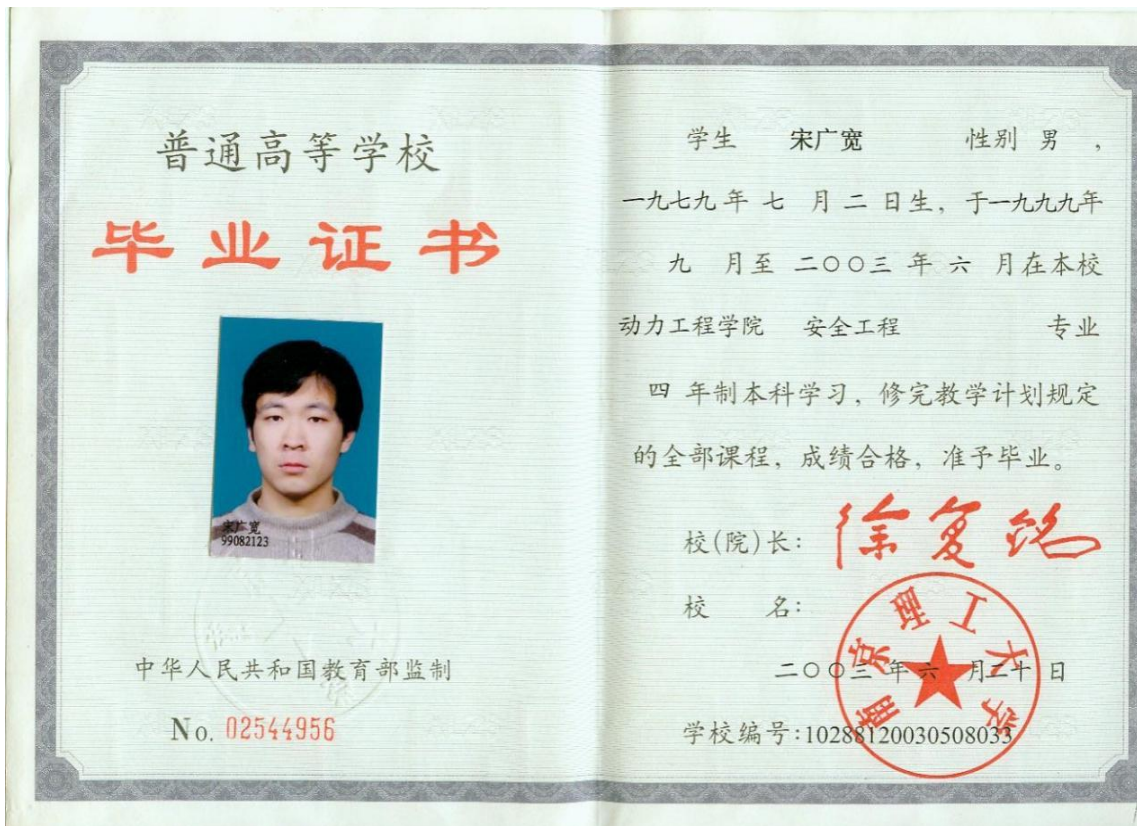 普通高等学校
毕业证书
宋广宽
99082123
中华人民共和国教育部监制
No. 02544956
学生 宋广宽 性别 男 ,
一九七九年 七 月 二 日生, 于一九九九年
九 月至 二〇〇三 年 六 月在本校
动力工程学院 安全工程 专业
四 年制本科学习, 修完教学计划规定
的全部课程, 成绩合格, 准予毕业。
校(院)长: 徐复铭
校 名:
南京理工大学
二〇〇三年六 月二十日
学校编号:10288120030508033